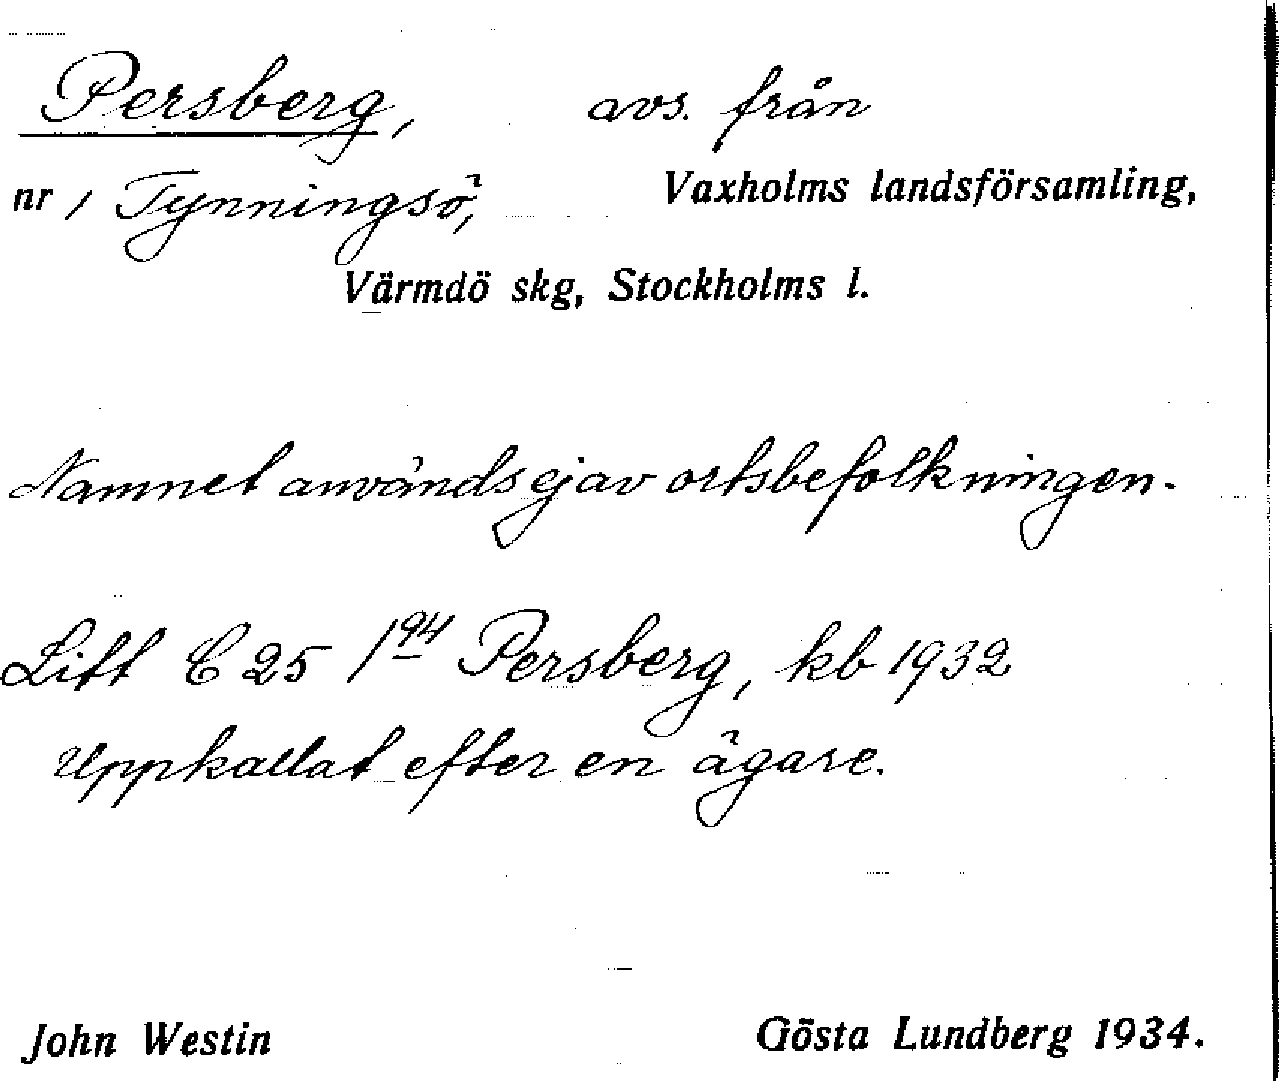 Persberg, avs. från
nr 1 Tynningsö, Vaxholms landsförsamling,
Värmdö skg, Stockholms l.
Namnet användes ej av ortsbefolkningen.
Litt C 25 1 94 Persberg, kb 1932
Uppkallat efter en ägare.
John Westin Gösta Lundberg 1934.